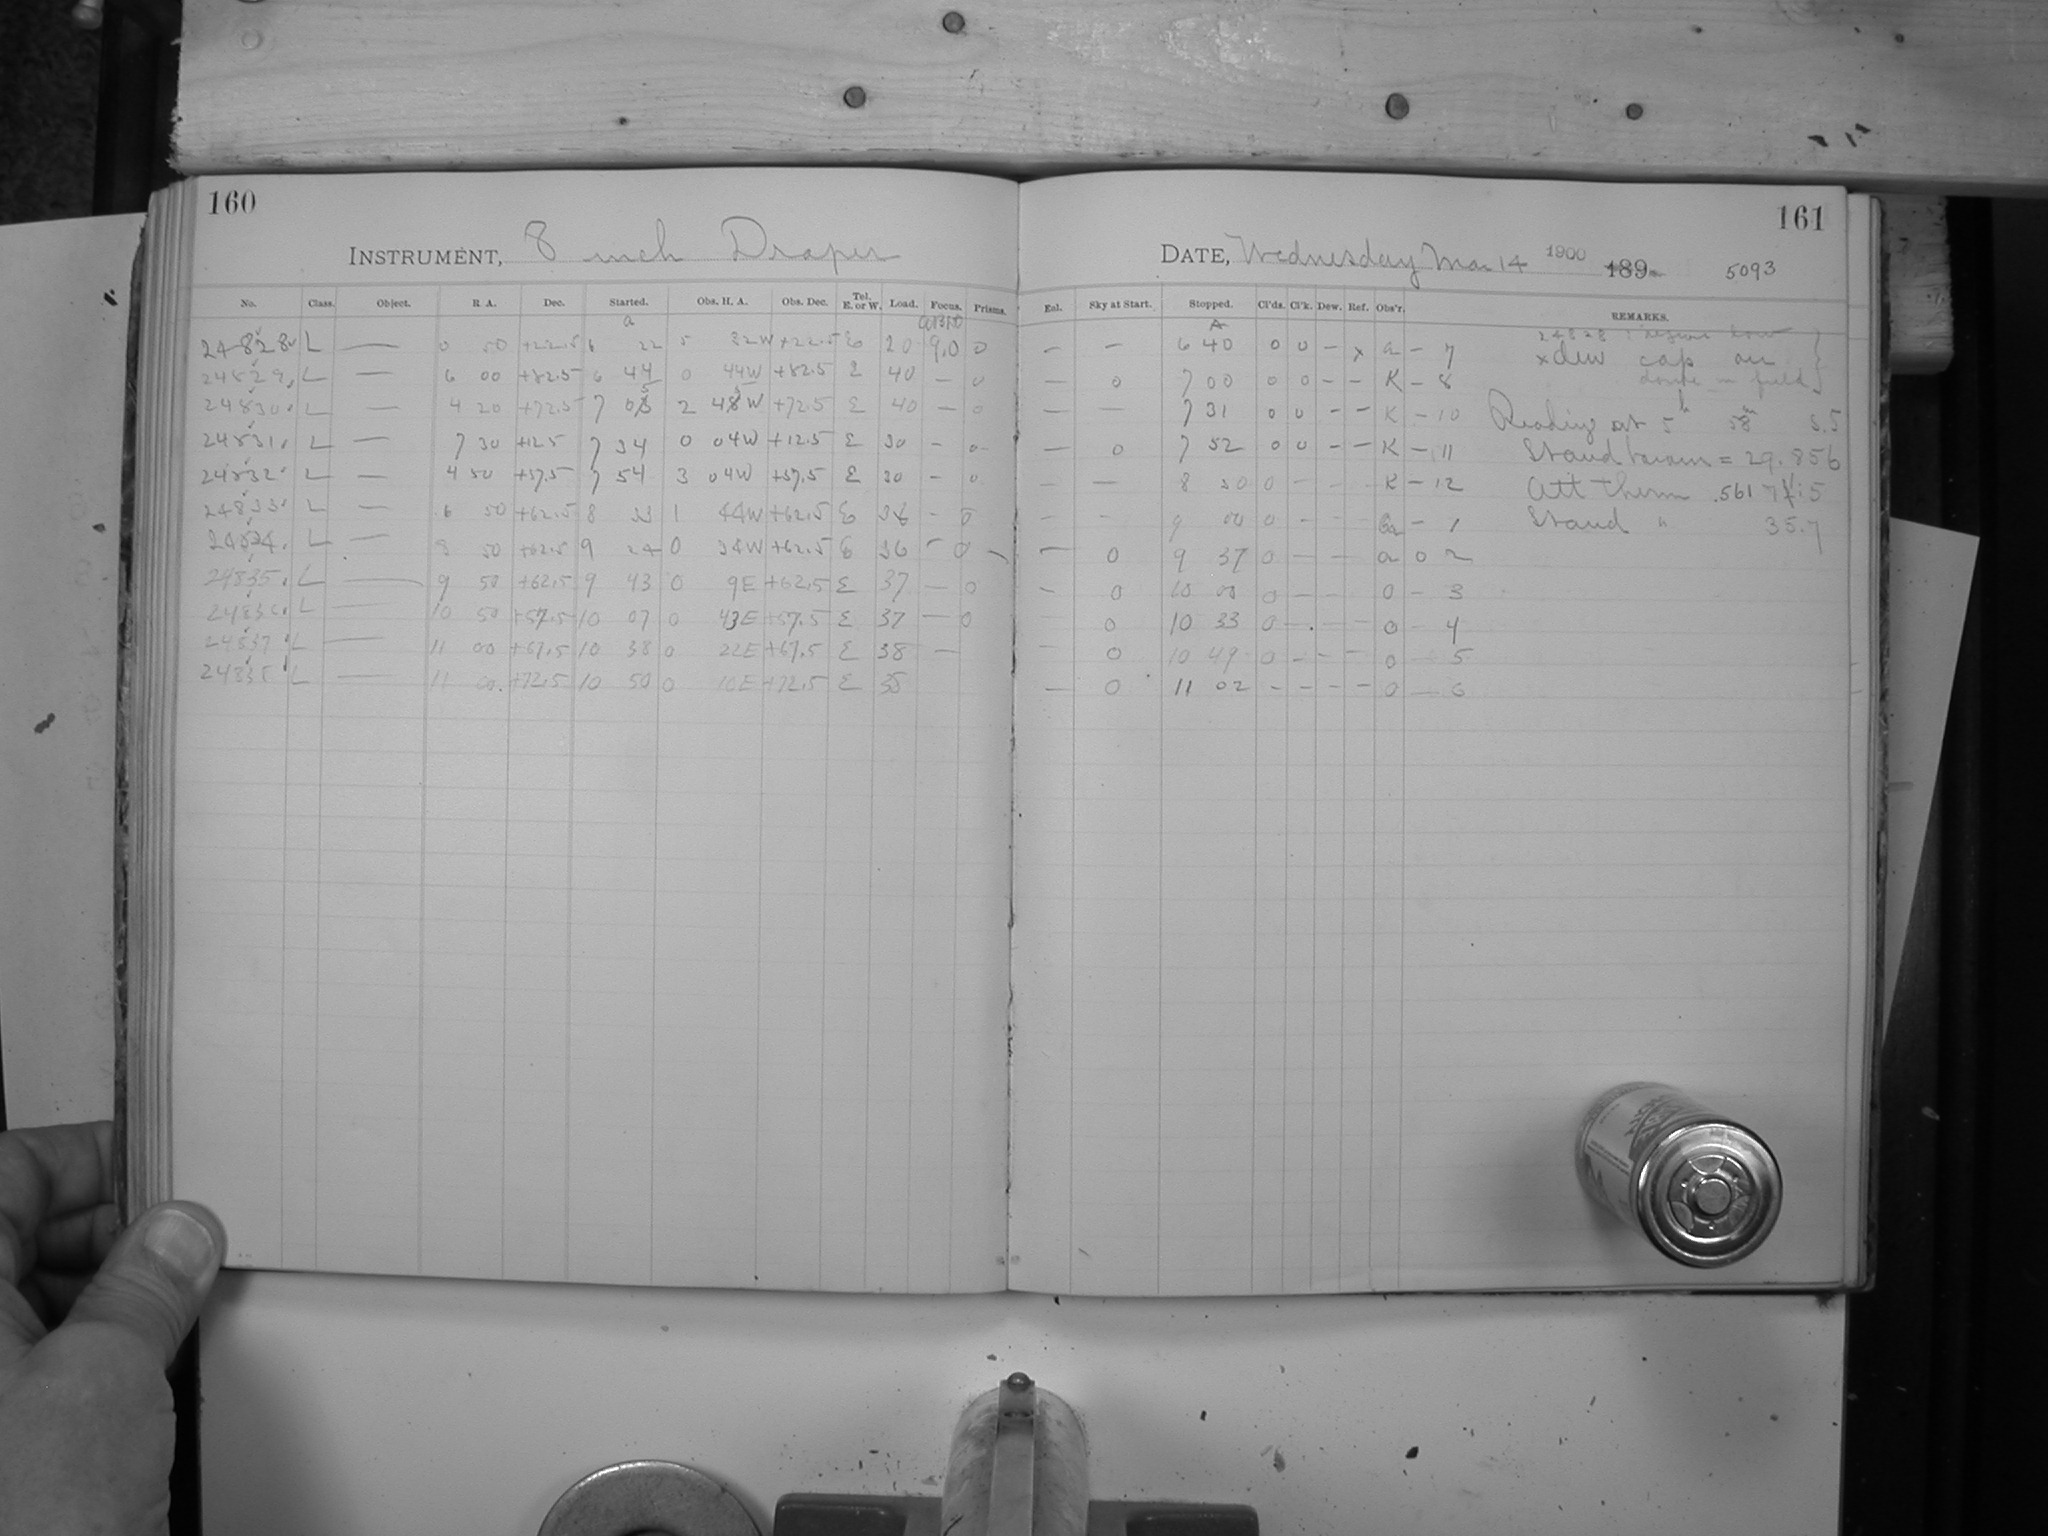 160
INSTRUMENT, 8 inch Draper
No. Class. Object. R A. Dec. Started. Obs. H. A. Obs. Dec. Tel. E. or W. Load. Focus. Prisms.
a
24828 L — 0 50 +22.5 6 22 5 32W +22.5 E 20 9.0 0
24829 L — 6 00 +82.5 6 44 0 44W +82.5 E 40 — 0
24830 L — 4 20 +72.5 7 05 2 45W +72.5 E 40 — 0
24831 L — 7 30 +12.5 7 34 0 04W +12.5 E 30 — 0
24832 L — 4 50 +37.5 7 54 3 04W +37.5 E 30 — 0
24833 L — 6 50 +62.5 8 33 1 44W +62.5 E 36 — 0
24834 L — 8 50 +62.5 9 24 0 34W +62.5 E 36 — 0
24835 L — 9 50 +62.5 9 43 0 9E +62.5 E 37 — 0
24836 L — 10 50 +57.5 10 07 0 43E +57.5 E 37 — 0
24837 L — 11 00 +67.5 10 38 0 22E +67.5 E 38 —
24838 L — 11 00 +72.5 10 50 0 10E +72.5 E 35
161
DATE, Wednesday Mar 14 1900 189 5093
Eol. Sky at Start. Stopped. Cl'ds. Cl'k. Dew. Ref. Obs'r. REMARKS.
A
— — 6 40 0 0 — x a — 7 24828
x dew cap on
— 0 7 00 0 0 — — K — 8 in field
— — 7 31 0 0 — — K — 10 Reading at 5h 58m 5.5
— 0 7 52 0 0 — — K — 11 Stand barom = 29.856
— — 8 30 0 — — — K — 12 Att therm .561
— — 9 00 0 — — — — 1 Stand " 35.7
— 0 9 37 0 — — a 0 2
— 0 10 00 0 — — 0 — 3
0 10 33 0 — — — 0 — 4
— 0 10 49 0 — — — 0 — 5
— 0 11 02 — — — — 0 — 6